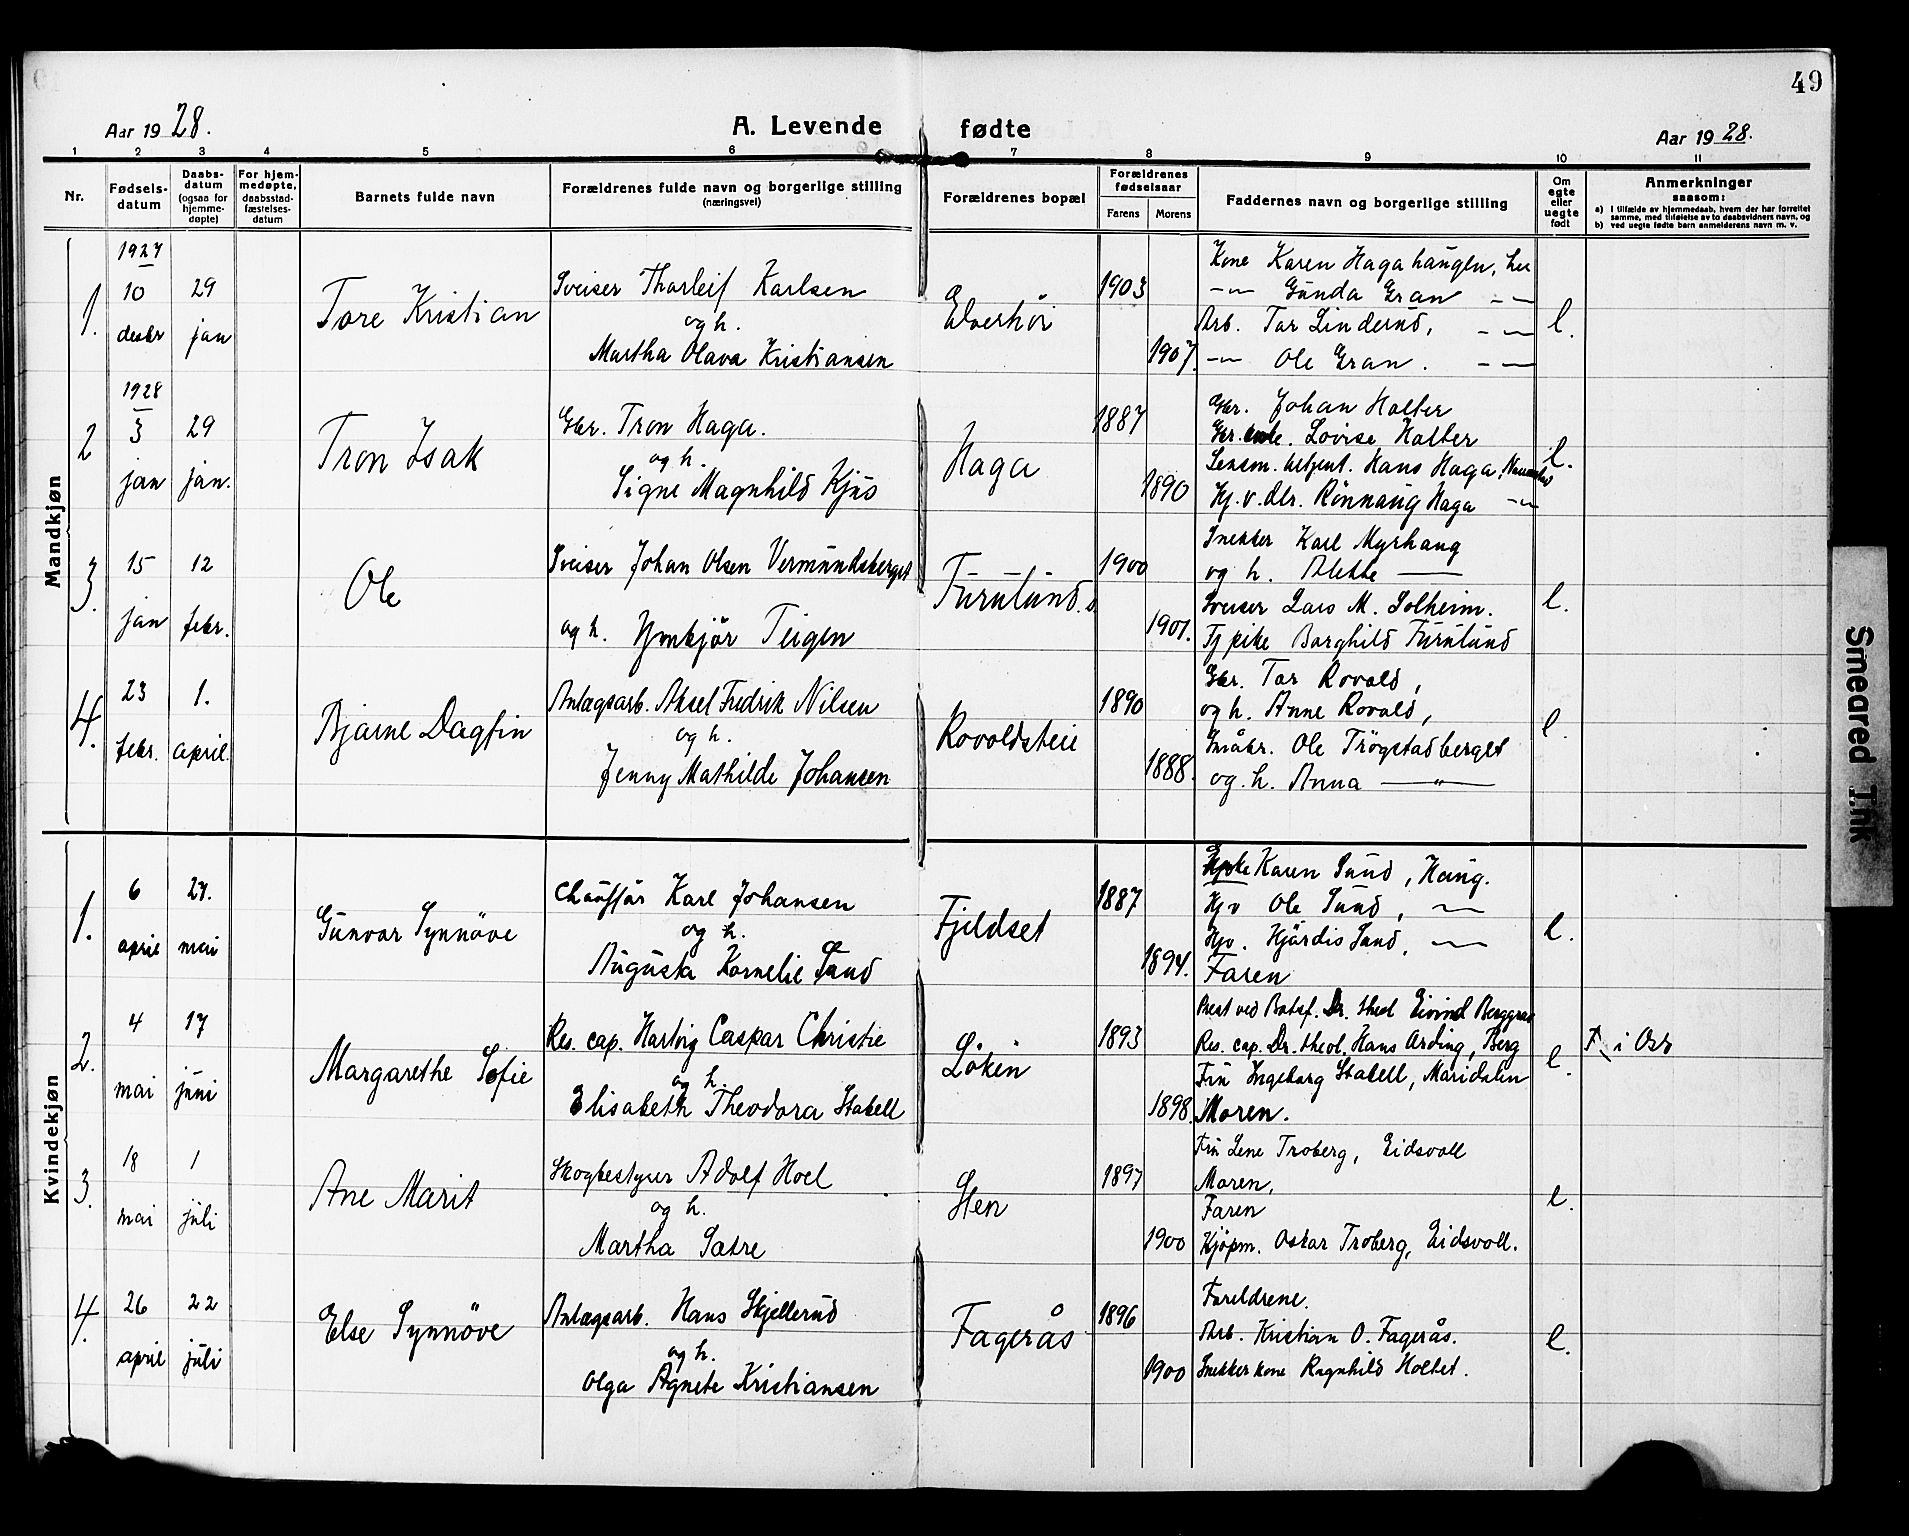 49
Aar 1928.
A. Levende fødte
Aar 1928.
1 2 3 4 5 6 7 8 9 10 11
Nr.
Fødsels-datum
Daabs-datum (ogsaa for hjemme-døpte)
For hjem-medøpte, daabsstad-fæstelses-datum
Barnets fulde navn
Forældrenes fulde navn og borgerlige stilling (næringsvei)
Forældrenes bopæl
Forældrenes fødselsaar
Farens Morens
Faddernes navn og borgerlige stilling
Om egte eller uegte født
Anmerkninger saasom:
a) I tilfælde av hjemmedaab, hvem der har forrettet samme, med tilføielse av to daabsvidners navn, og
b) ved uegte fødte barn anmelderens navn m. v.
Mandkjøn
1. 1927 10 desbr 29 jan
Tore Kristian
Sveiser Thorleif Karlsen
og h.
Martha Olava Kristiansen
Elverhöi
1903
1907.
Kone Karen Hagahaugen, her
—"— Gunda Gran —"—
Arb. Tor Linderud, —"—
—"— Ole Gran. —"—
e.
2 1928 3 jan 29 jan.
Tron Isak
Gbr. Tron Haga.
og h.
Signe Magnhild Kjus
Haga
1887
1890
Gbr. Johan Holter
Gbr. enke. Lovise Holter
Lensm. betjent. Hans Haga,
Hj. v. dtr. Rönnaug Haga —"—
e.
3. 15 jan 12 febr.
Ole
Sveiser Johan Olsen Vermundsberget
og h. Ymbjör Teigen
Furulund.
1900
1901.
Snekker Karl Myrhaug
og h. Alette ———
Sveiser Lars M. Solheim.
Tj pike Borghild Furulund
e.
4. 23 febr. 1. april.
Bjarne Dagfin
Anlægsarb. Aksel Fredrik Nilsen
og h.
Jenny Mathilde Johansen
Rovoldsteie
1890
1888.
Gbr. Tor Rovold,
og h. Anne Rovold,
Småbr. Ole Trögstadberget
og. h. Anna —"—
e.
Kvindekjøn
1. 6 april 27. mai
Gunvor Synnöve
Chaufför Karl Johansen
og h.
Augusta Kornelie Sund
Fjeldset
1887
1894.
Karen Sund, Haug.
Hjv Ole Sund, —"—
Hjv. Hjördis Sund, —"—
Faren
e.
2. 4 mai 17 juni
Margarethe Sofie
Res. cap. Hartvig Caspar Christie
og h.
Elisabeth Theodora Stabell
Löken
1893
1898.
Prest ved Botsf. Dr. theol Eivind Berggrav
Res. cap. Dr. theol. Hans Ording, Berg
Fru Ingeborg Stabell, Maridalen
Moren.
e.
3. 18 mai 1 juli
Ane Marit
Skogbestyrer Adolf Hoel
og h.
Martha Sætre
Sten
1897
1900
Fru Lene Troberg, Eidsvoll
Moren,
Faren
Kjöpm. Oskar Troberg, Eidsvoll.
e.
4. 26 april 22 juli
Else Synnöve
Anlægsarb. Hans Skjellerud
og h.
Olga Agnete Kristiansen
Fagerås
1896
1900
Foreldrene.
Arb. Kristian O. Fagerås.
Snekker kone Ragnhild Holtet.
e.
Smeared Ink